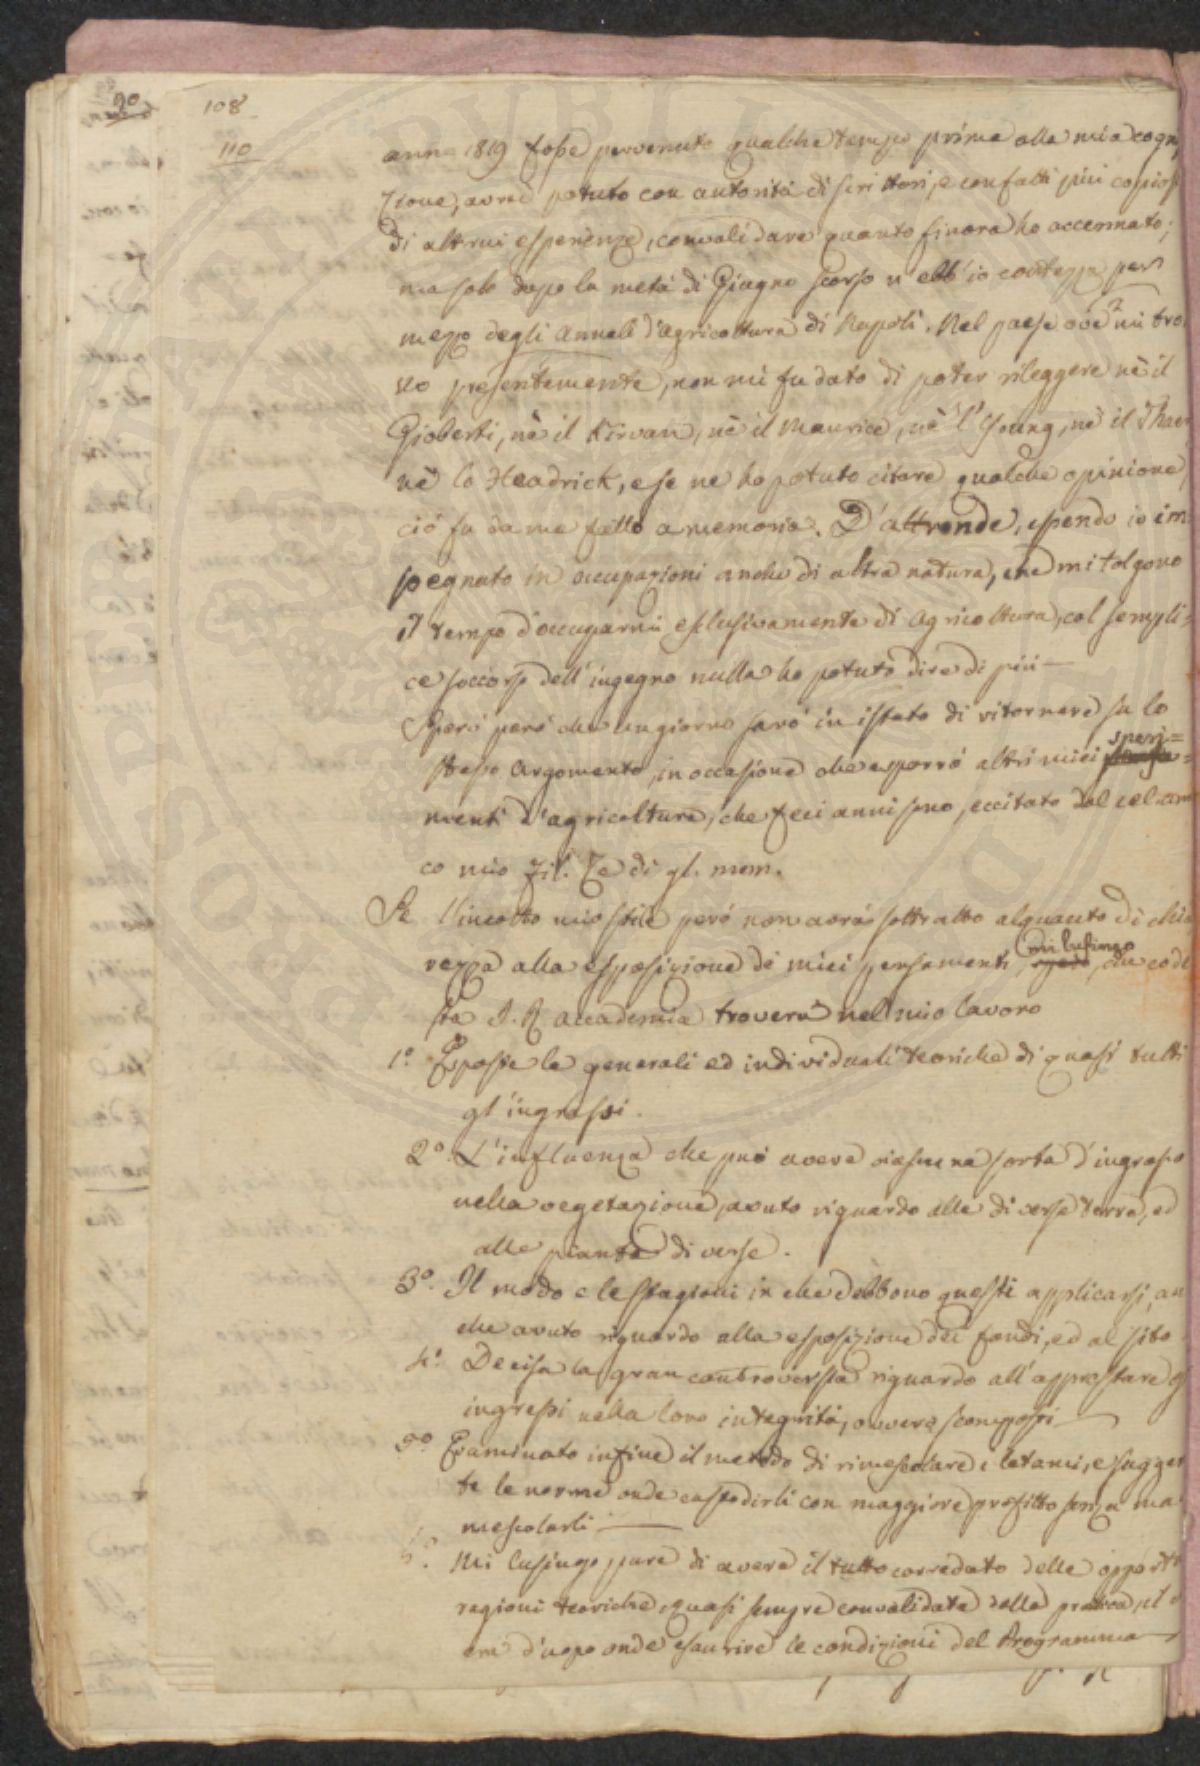 108
110
anno 1819 fosse pervenuto qualche tempo prima alla mia cogni
zione, avrei potuto con autorità di scrittori, e con fatti più copiosi
di altrui esperienze, convalidare quanto finora ho accennato;
ma solo dopo la metà di Giugno scorso n'ebb'io contezza per
mezzo degli Annali d'agricoltura di Napoli. Nel paese ove mi tro
vo presentemente, non mi fu dato di poter rileggere nè il
Gioberti, nè il Kirvan, nè il Maurice, nè l'Young, nè il Thaer
nè lo Headrick, e se ne ho potuto citare qualche opinione,
ciò fu da me fatto a memoria. D'altronde, essendo io im
pegnato in occupazioni anche di altra natura, che mi tolgono
il tempo d'occuparmi esclusivamente di agricoltura, col sempli=
ce soccorso dell'ingegno nulla ho potuto dire di più —
Sperò però che un giorno sarò in istato di ritornare su lo
stesso argomento, in occasione che esporrò altri miei speri=
menti d'agricoltura, che feci anni sono, eccitato dal
co mio Fil. Re di gl. mem.
Se l'incolto mio stile però non avrà sottratto alquanto di chia
rezza alla esposizione de' miei pensamenti, mi lusingo, che code
sta I. R. accademia troverà nel mio lavoro
1º. Esposte le generali ed individuali teoriche di quasi tutti
gl'ingrassi.
2º. L'influenza che può avere ciascuna sorta d'ingrasso
nella vegetazione, avuto riguardo alle diverse terre, ed
alle piante diverse.
3º. Il modo e le stagioni in che debbono questi applicarsi, an
che avuto riguardo alla esposizione dei fondi, ed al sito
4º. Decisa la gran controversia riguardo all'apprestare gl
ingrassi nella loro integrità, ovvero scomposti —
5º. Esaminato infine il metodo di rimescolare i letami, e sugger
te le norme onde custodirli con maggiore profitto senza
mescolarli —
6º. Mi lusingo pure di avere il tutto corredato delle opport
ragioni teoriche, quasi sempre convalidate dalla pratica, il
era d'uopo onde esaurire le condizioni del Programma —